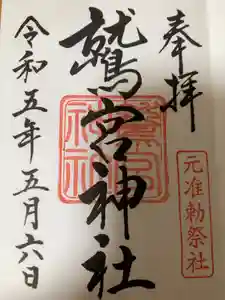 奉拝
元准勅祭社
鷲宮神社
鷲宮神社
令和五年五月六日